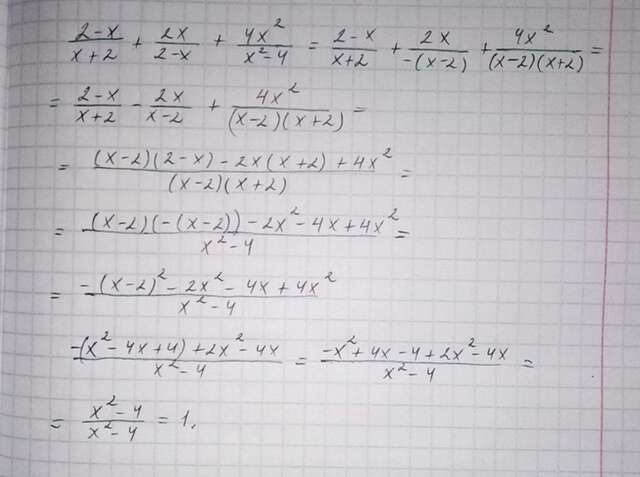 (2-x)/(x+2) + 2x/(2-x) + 4x²/(x²-4) = (2-x)/(x+2) + 2x/(-(x-2)) + 4x²/((x-2)(x+2)) =
= (2-x)/(x+2) - 2x/(x-2) + 4x²/((x-2)(x+2)) =
= ((x-2)(2-x) - 2x(x+2) + 4x²)/((x-2)(x+2)) =
= ((x-2)(-(x-2)) - 2x² - 4x + 4x²)/(x²-4) =
= (-(x-2)² - 2x² - 4x + 4x²)/(x²-4)
(-(x²-4x+4) + 2x² - 4x)/(x²-4) = (-x² + 4x - 4 + 2x² - 4x)/(x²-4) =
= (x²-4)/(x²-4) = 1.